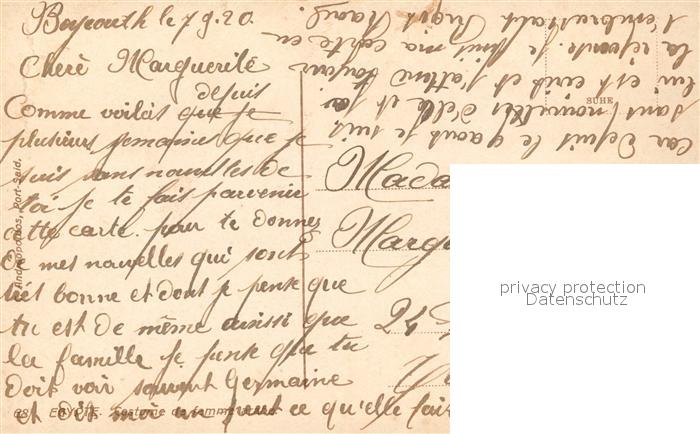 Beyrouth le 7.9.20.
Cherè Marguerite
depuis
Comme voilàs que je
plusieurs semaines que je
suis sans nouvelles de
toi je te fais parvenir
cette carte pour te donner
de mes nouvelles qui sont
trés bonne et dont je pense que
tu est de même aussi que
la famille je pense que tu
doit voir souvent Germaine
et dit moi un peut ce qu'elle fait
car depuis le 9 aout je suis
sans nouvelles d'elle et j'ai
lui est ecrit et j'attend toujour
la reponse. je finis ma carte en
t'embrassant
Mada
Margu
24
Andreopoulos, Port-Said.
68. EGYPTE. Costume de femme
SUHE
privacy protection
Datenschutz